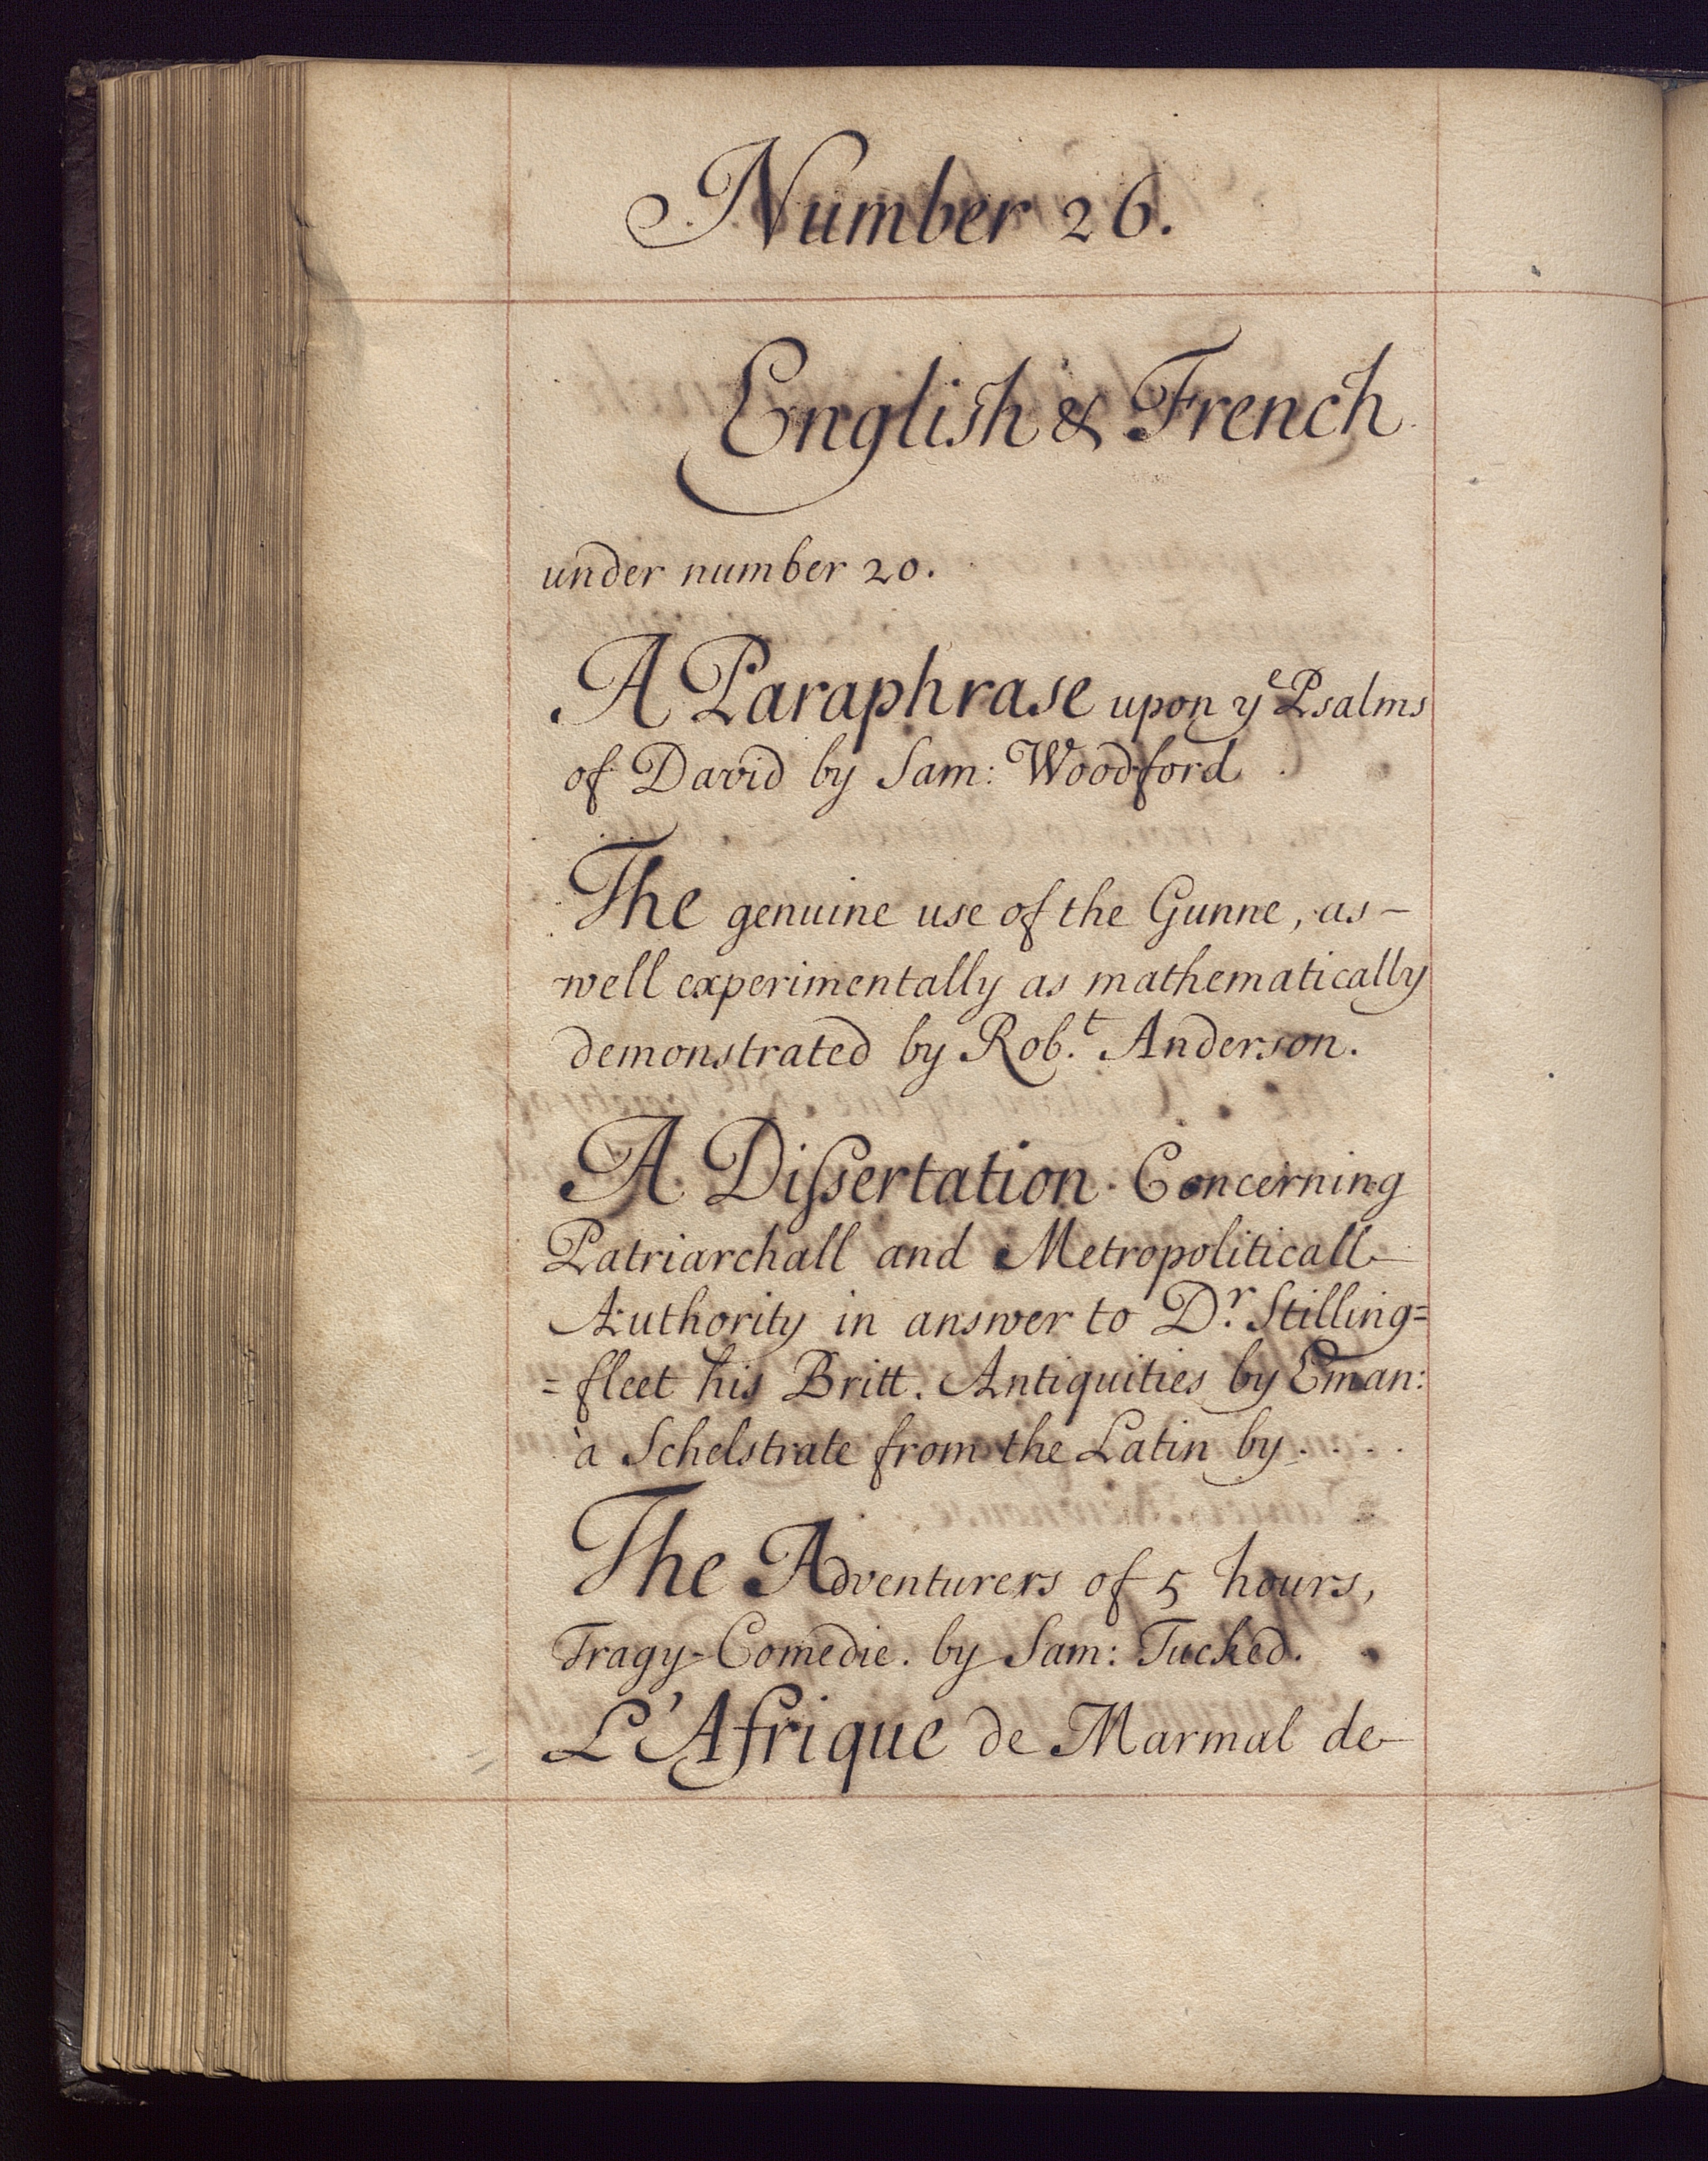 Number 26.
English & French
under number 20.
A Paraphrase upon yᵉ Psalms
of David by Sam: Woodford
The genuine use of the Gunne, as -
well experimentally as mathematically
demonstrated by Rob.ᵗ Anderson.
A Dissertation Concerning
Patriarchall and Metropoliticall
Authority in answer to Dʳ. Stilling=
=fleet his Britt. Antiquities by Eman:
à Schelstrate from the Latin by . . . .
The Adventurers of 5 hours,
Tragy-Comedie. by Sam: Tucked.
L'Afrique de Marmal de